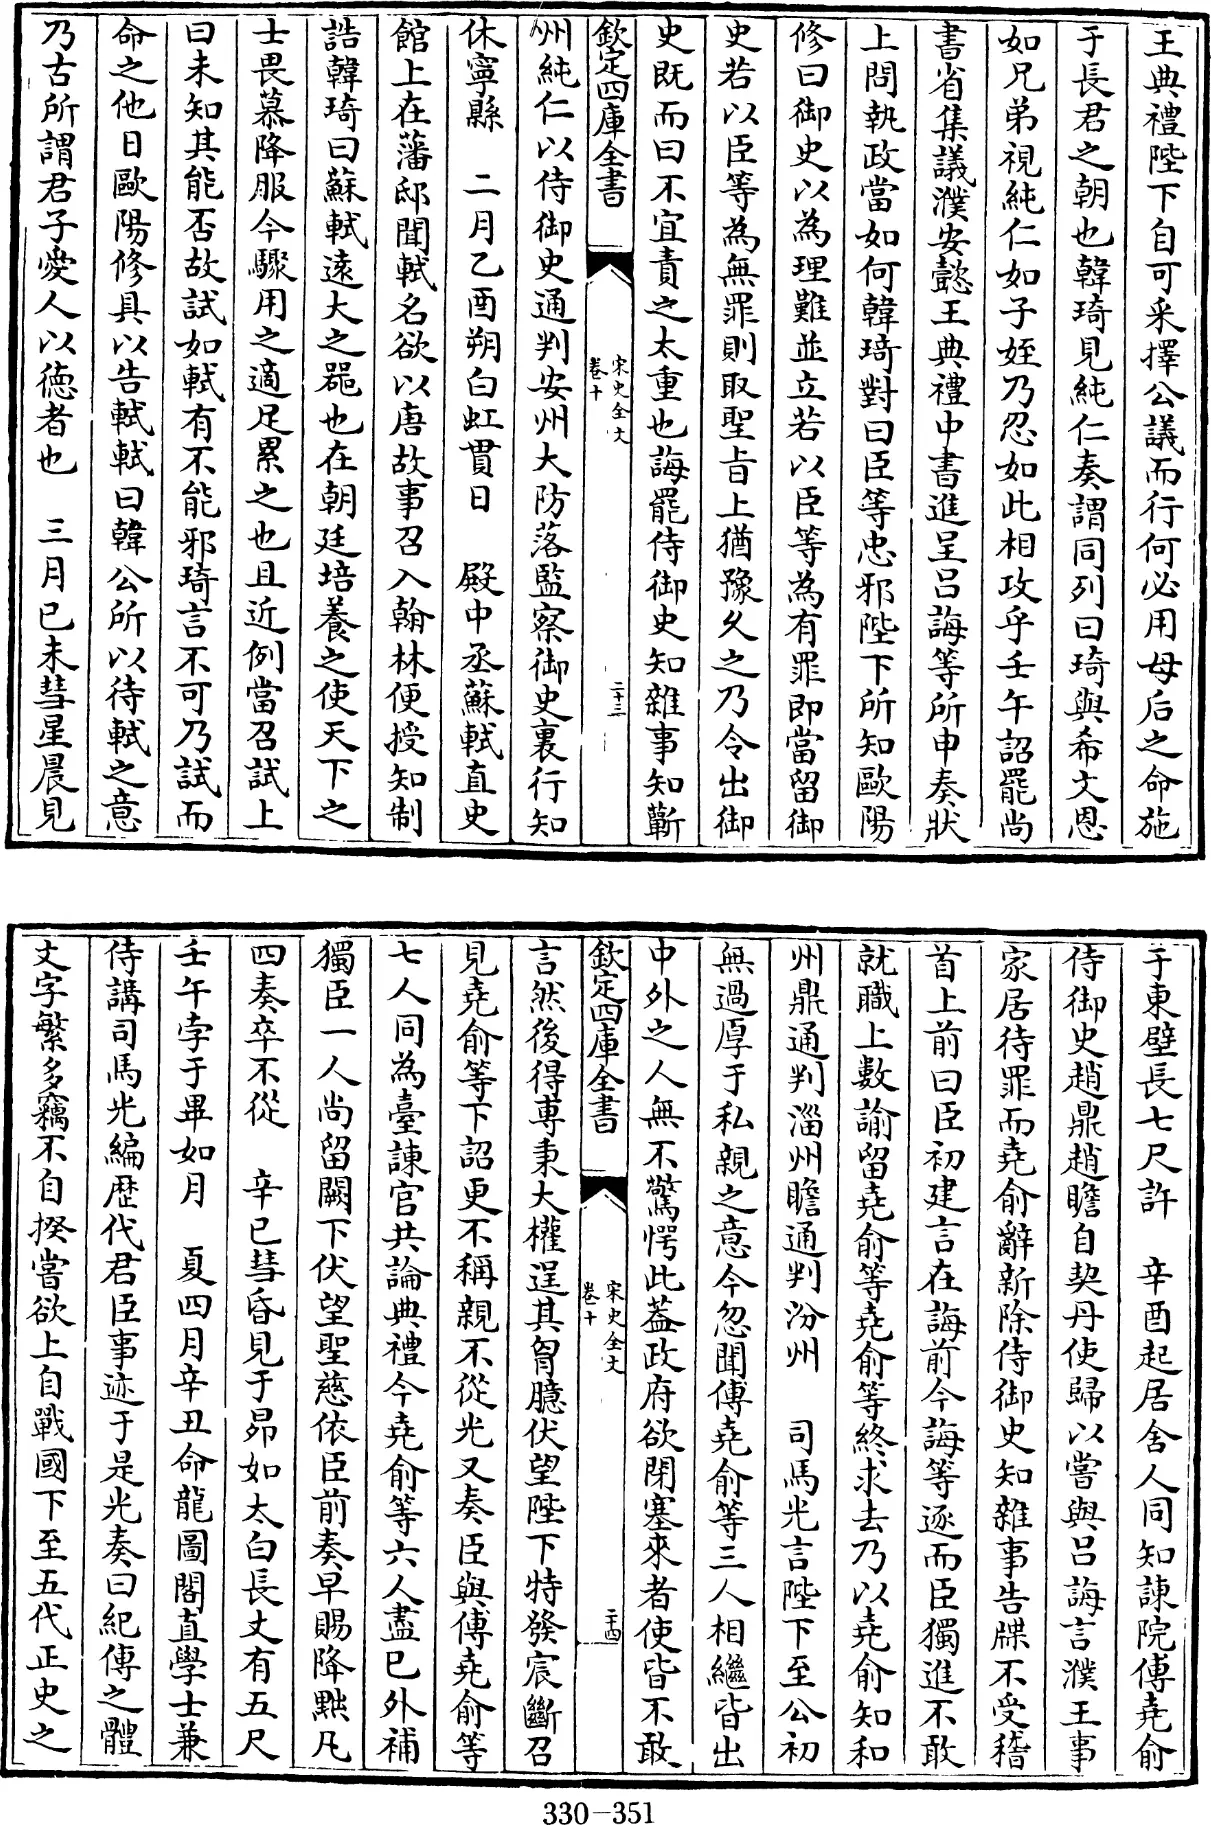 王典禮陛下自可采擇公議而行何必用母后之命施
于長君之朝也韓琦見純仁奏謂同列曰琦與希文恩
如兄弟視純仁如子姪乃忍如此相攻乎壬午詔罷尚
書省集議濮安懿王典禮中書進呈呂誨等所申奏狀
上問執政當如何韓琦對曰臣等忠邪陛下所知歐陽
修曰御史以為理難並立若以臣等為有罪即當留御
史若以臣等為無罪則取聖旨上猶豫久之乃令出御
史既而曰不宜責之太重也誨罷侍御史知雜事知蘄
欽定四庫全書
宋史全文
卷十
二十三
州純仁以侍御史通判安州大防落監察御史裏行知
休寧縣 二月乙酉朔白虹貫日 殿中丞蘇軾直史
館上在藩邸聞軾名欲以唐故事召入翰林便授知制
誥韓琦曰蘇軾遠大之器也在朝廷培養之使天下之
士畏慕降服今驟用之適足累之也且近例當召試上
曰未知其能否故試如軾有不能邪琦言不可乃試而
命之他日歐陽修具以告軾軾曰韓公所以待軾之意
乃古所謂君子愛人以德者也 三月已未彗星晨見
于東壁長七尺許 辛酉起居舍人同知諫院傅堯俞
侍御史趙鼎趙瞻自契丹使歸以嘗與呂誨言濮王事
家居待罪而堯俞辭新除侍御史知雜事告牒不受稽
首上前曰臣初建言在誨前今誨等逐而臣獨進不敢
就職上數諭留堯俞等堯俞等終求去乃以堯俞知和
州鼎通判淄州瞻通判汾州 司馬光言陛下至公初
無過厚于私親之意今忽聞傅堯俞等三人相繼皆出
中外之人無不驚愕此蓋政府欲閉塞來者使皆不敢
欽定四庫全書
宋史全文
卷十
二十四
言然後得專秉大權逞其胷臆伏望陛下特發宸斷召
見堯俞等下詔更不稱親不從光又奏臣與傅堯俞等
七人同為臺諫官共論典禮今堯俞等六人盡已外補
獨臣一人尚留闕下伏望聖慈依臣前奏早賜降黜凡
四奏卒不從 辛巳彗昏見于昴如太白長丈有五尺
壬午孛于畢如月 夏四月辛丑命龍圖閣直學士兼
侍講司馬光編歷代君臣事迹于是光奏曰紀傳之體
文字繁多竊不自揆嘗欲上自戰國下至五代正史之
330-351